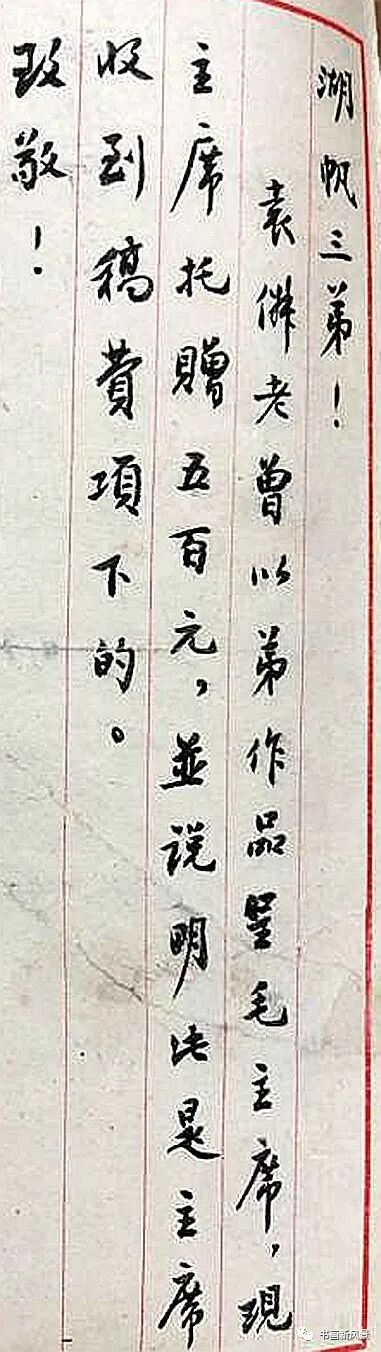 湖帆三弟！
袁僻老曾以弟作品呈毛主席，現
主席托贈五百元，並説明此是主席
收到稿費項下的。
致敬！
书画新风景